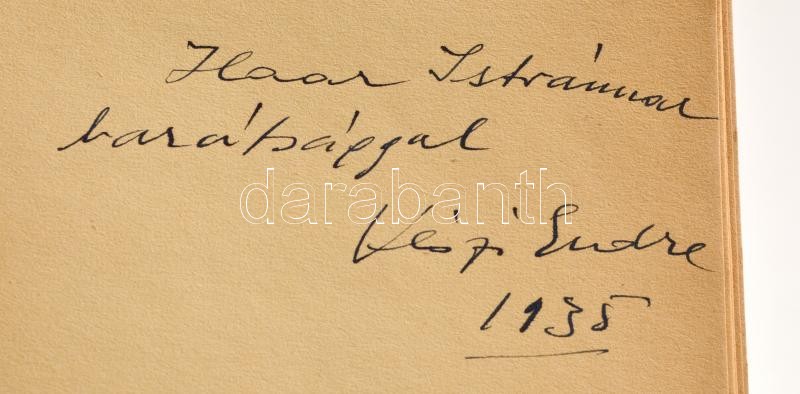 Haar Istvánnak
barátsággal
darabanth
Vészi Endre
1935